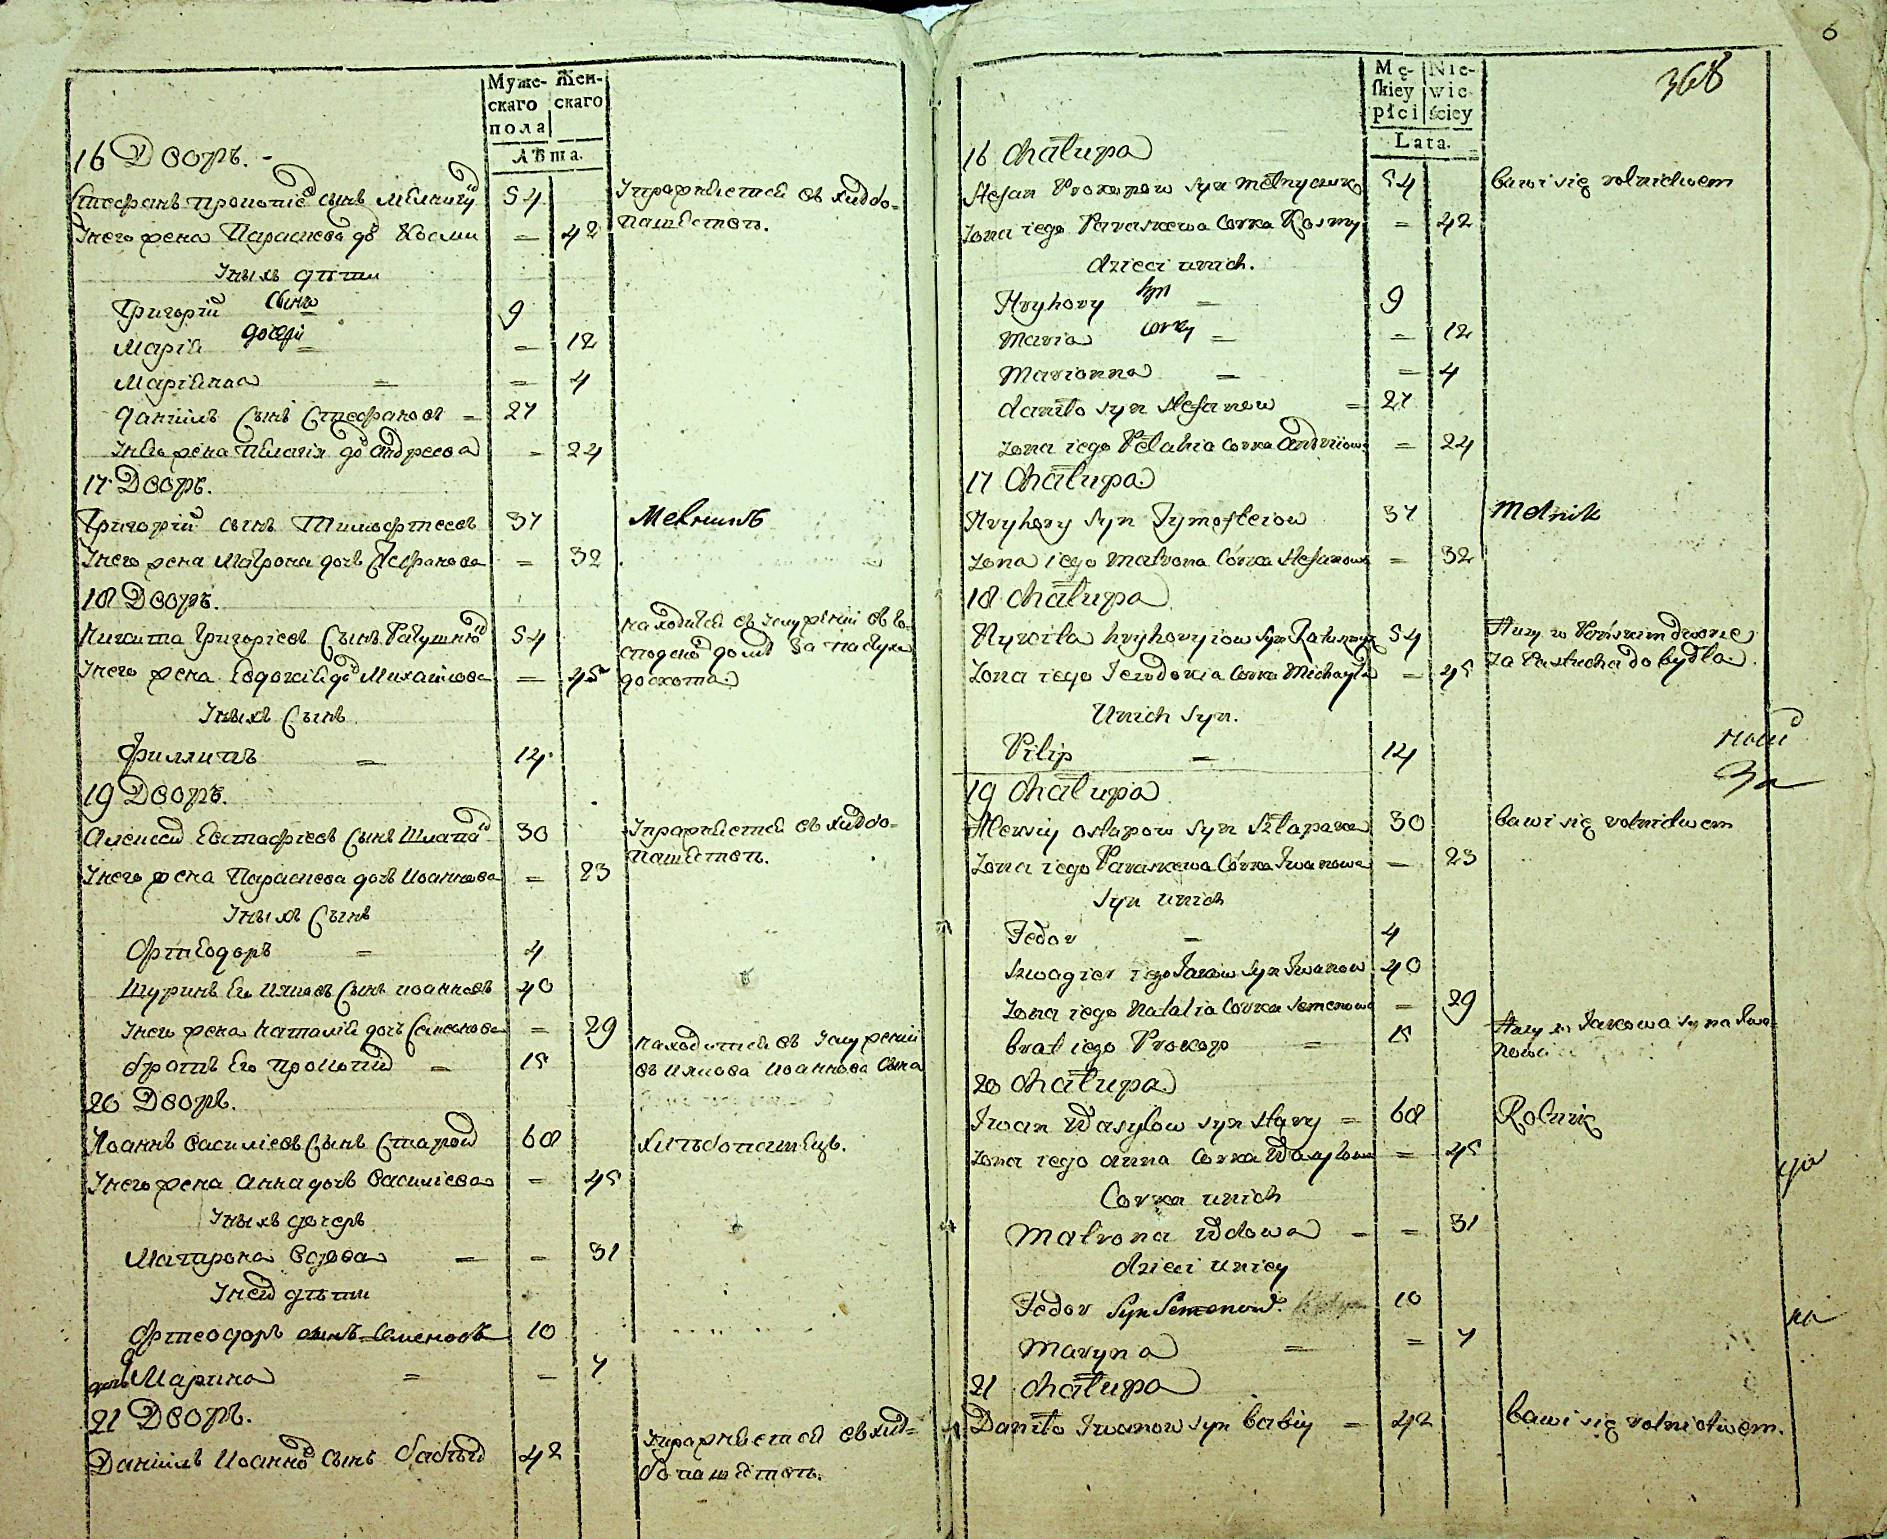 Муже-
скаго
пола
Жен-
скаго
Лѣта.
16 Дворъ.
Стефанъ Прокопіе сынъ
54
Упражняется въ хлѣбо-
Унего жена Параскева до Космы
=
42
пашествѣ.
Унихъ дѣти
Григорій сынъ
9
Марія дочери
=
12
Маріянна =
=
4
Даніилъ сынъ Стефановъ =
27
Унего жена Пелагія до Андреева
=
24
17 Дворъ.
Григорій сынъ Тимофтеевъ
37
Мелникъ
Унего жена Матрона дочь Стефанова
=
32
18 Дворъ.
Никита Григоріевъ сынъ
54
находится въ услуженіи въ го-
сподско домѣ за пастуха
Унего жена Евдокія до Михайлова
=
45
до скота
Унихъ сынъ
Филлипъ =
14
19 Дворъ.
Алексей Евстафіевъ сынъ
30
Упражняется въ хлѣбо-
пашествѣ.
Унего жена Параскева дочь Иоаннова
=
23
Унихъ сынъ
Фтеодоръ =
4
Шуринъ Его Ияковъ сынъ Иоанновъ
40
Унего жена Наталія дочь Семенова
=
29
находится въ услуженіи
братъ Его Прокопій =
15
въ Иякова Иоаннова сына
20 Дворъ.
Иоаннъ Василіевъ сынъ Старой
68
хлѣбопашецъ.
Унего жена Анна дочь Василіева
=
45
Унихъ дочерь
Матрона вдова =
=
31
Уней дѣти
Фтеодоръ сынъ Семеновъ
10
дочь Марина =
=
7
21 Дворъ.
Даніилъ Иоанно сынъ Бабій
42
Упражняется въ хлѣ=
бопашествѣ.
6
368
Mę-
skiey
płci
Nie-
wie
ściey
Lata.
16 Chałupa
Stefan Prokopow syn Melnyczuk
54
bawi się rolnictwem
Zona iego Paraskewa Corka Kosmy
=
42
dzieci unich.
Hryhory syn =
9
Maria corky =
=
12
Marianna =
=
4
Daniło syn Stefanow =
27
Zona iego Pelahia Corka Andriiowa
=
24
17 Chałupa
Hryhory syn Tymofteiow
37
Melnik
Zona iego Matrona Córka Stefanowa
=
32
18 Chałupa
Nykita Hryhoryiow syn
54
Służy w Pańskim dworze
za Pastucha do bydła.
Zona iego Jewdokia Corka Michayła
=
45
Unich syn.
Pilip =
14
19 Chałupa
Alexiy Ostapow syn Szłapak
30
bawi się rolnictwem
Zona iego Paraskewa Córka Iwanowa
=
23
Syn unich
Fedor =
4
Szwagier iego Jakow syn Iwanow
40
Zona iego Natalia Corka Semenowa
=
29
brat iego Prokop =
15
Służy w Jakowa syna Iwa-
nowa
20 Chałupa
Iwan Wasylow syn Stary =
68
Rolnik
Zona iego Anna Corka Wasylowa
=
45
Corka unich
Matrona Wdowa =
=
31
dzieci uniey
Fedor syn Semenow.
10
Maryna =
=
7
21 Chałupa
Daniło Iwanow syn Babiy =
42
bawi się rolnictwem.